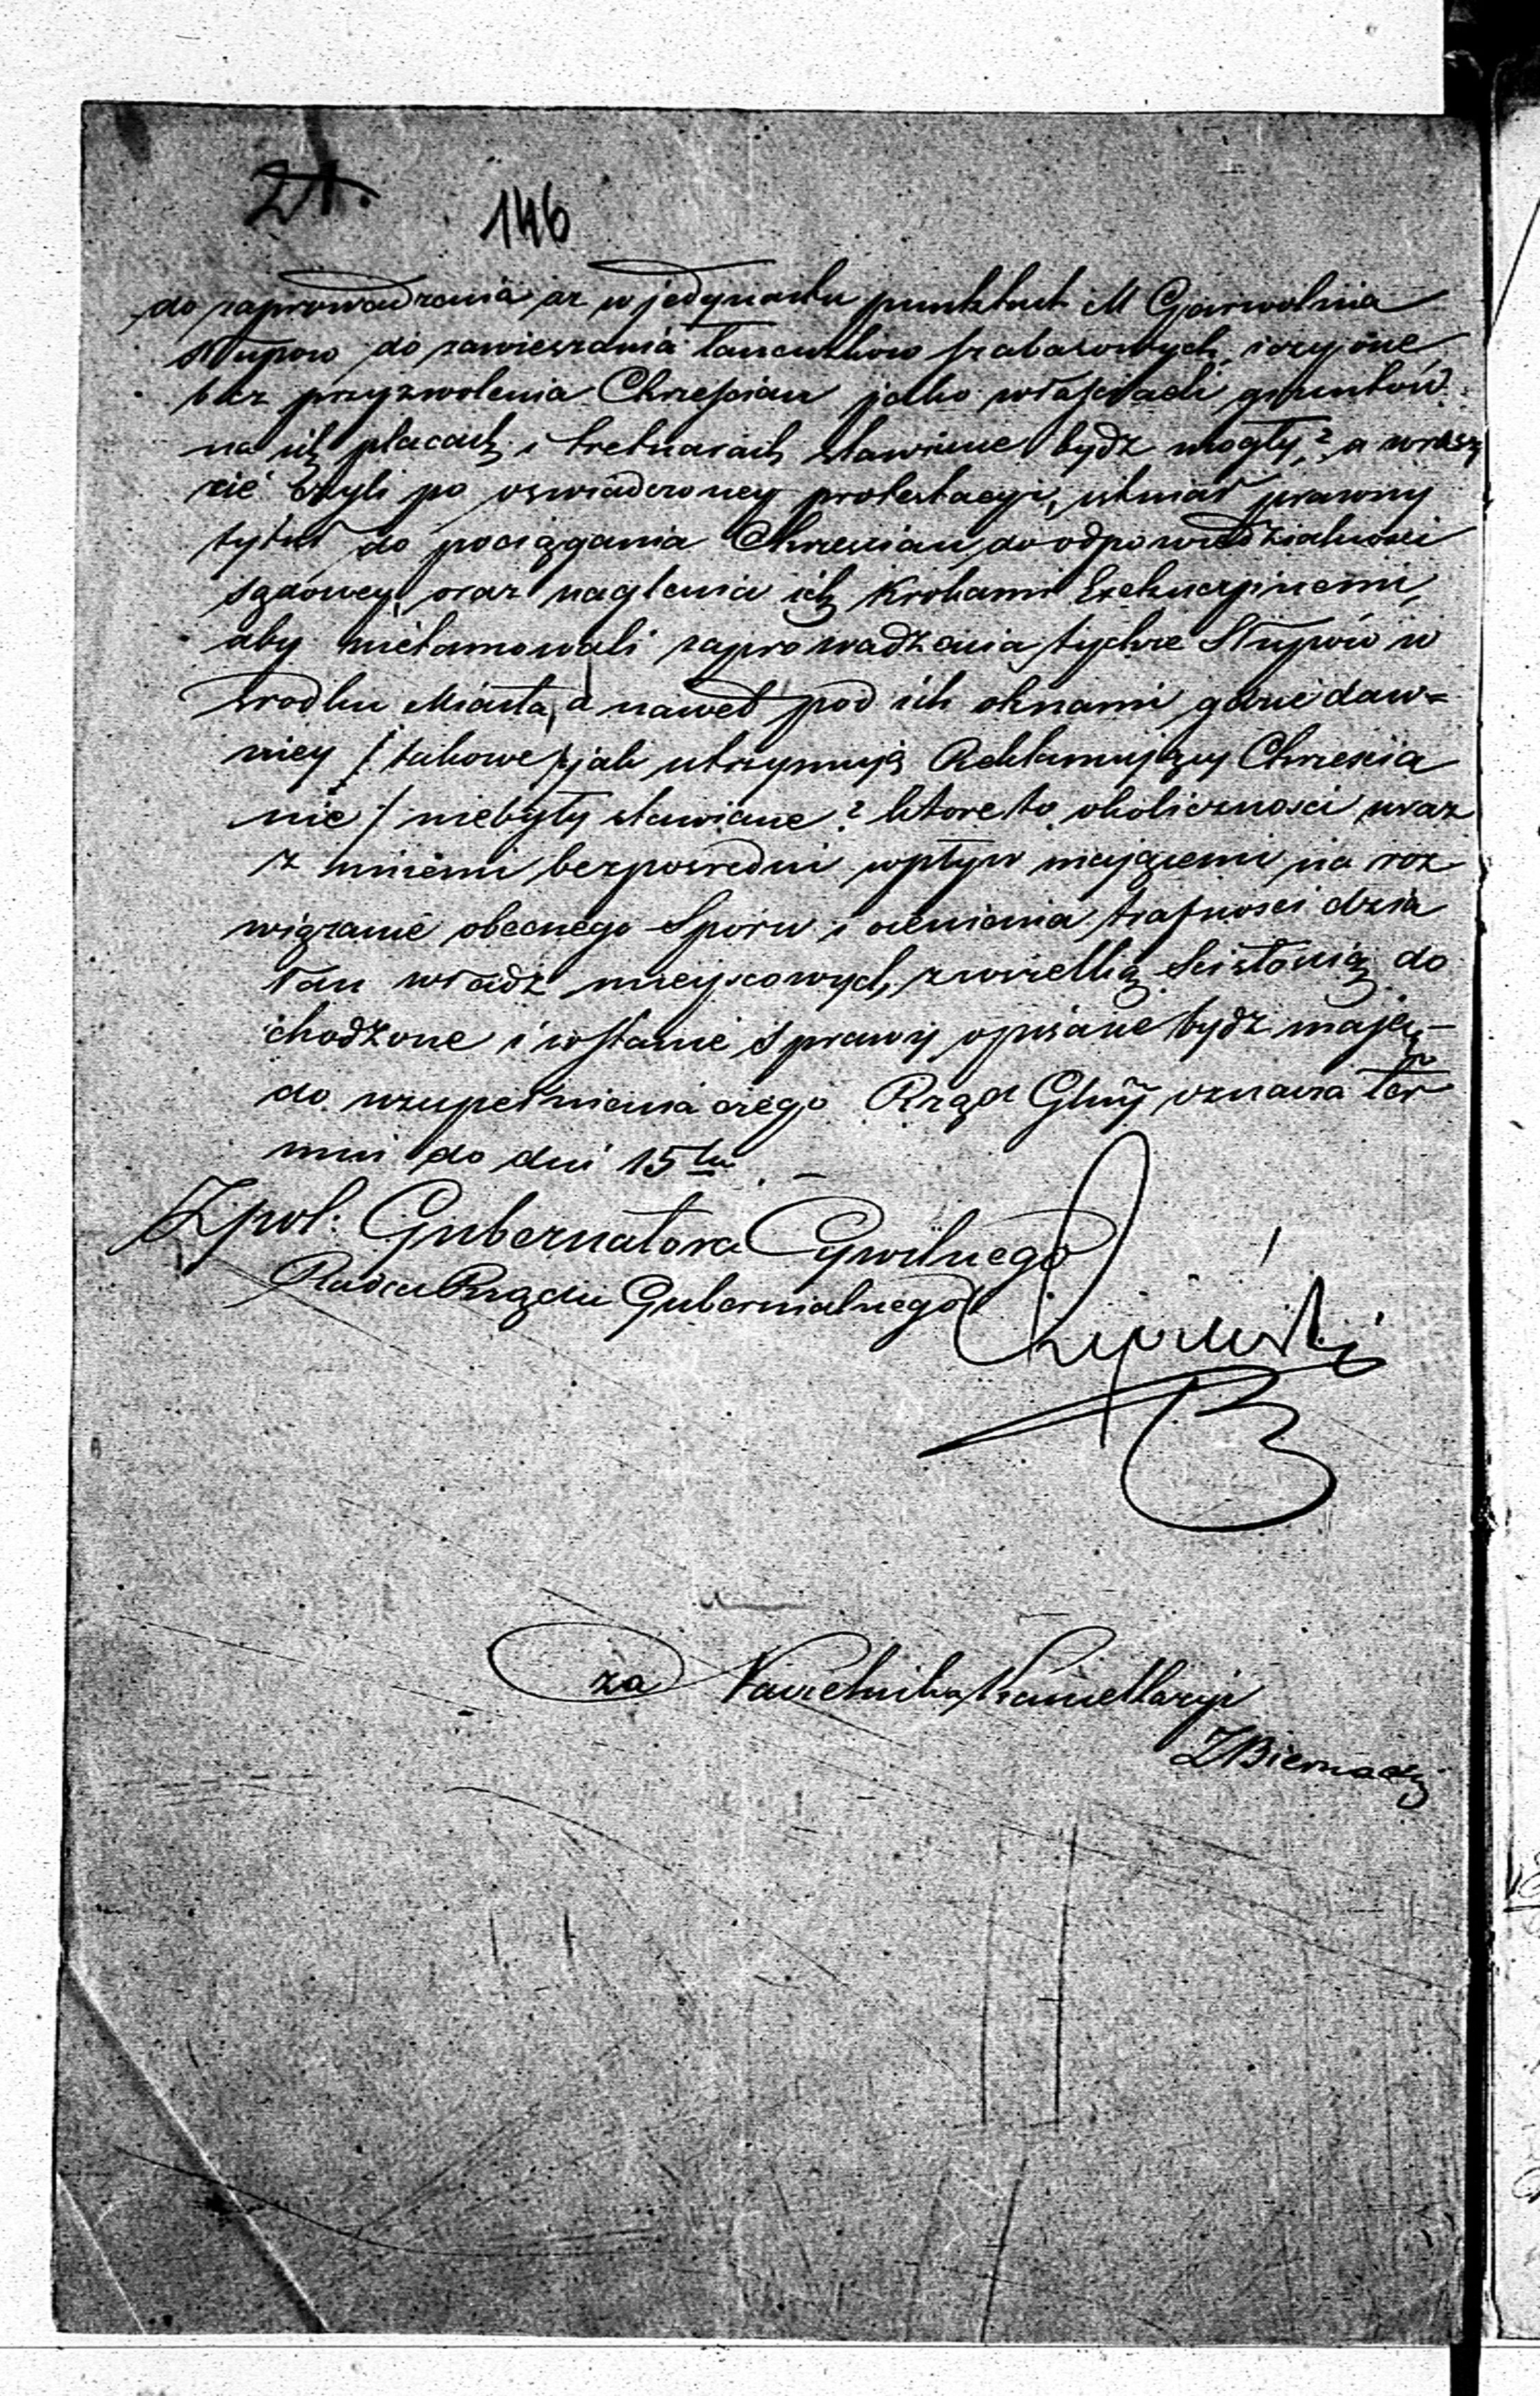 21.
146
do zaprowadzenia aż w jedynastu punktach M Garwolina
słupow do zawieszania łancuszkow szabasowych, i czy one
bez przyzwolenia Chrzescian jako właścicieli gruntów
na ich placach i tretuarach stawiane bydz mogły? a wresz
cie czyli po oswiadczoney protestacyi, istniał prawny
tytuł do pociągania Chrzescian do odpowiedzialnosci
sądowey, oraz naglenia ich Krokami Exekucyinemi,
aby nietamowali zaprowadzenia tychże Słupów w
srodku Miasta, a nawet pod ich oknami gdzie daw=
niey / takowe jak utrzymują Reklamujący Chrzescia
nie / niebyły stawiane? ktore to okolicznosci wraz
z innemi bezposredni wpływ mającemi na roz
wiązanie obecnego Sporu i ocenienia trafnosci dzia
łan władz mieyscowych, z wszelką scisłoscią do
chodzone i w stanie sprawy opisane bydz mają, –
do uzupełnienia czego Rząd Glny oznacza ter
min do dni 15tu. –
Z pol: Gubernatora Cywilnego
Radca Rządu Gubernialnego
za Naczelnika Kancellaryi
Z Biernacki